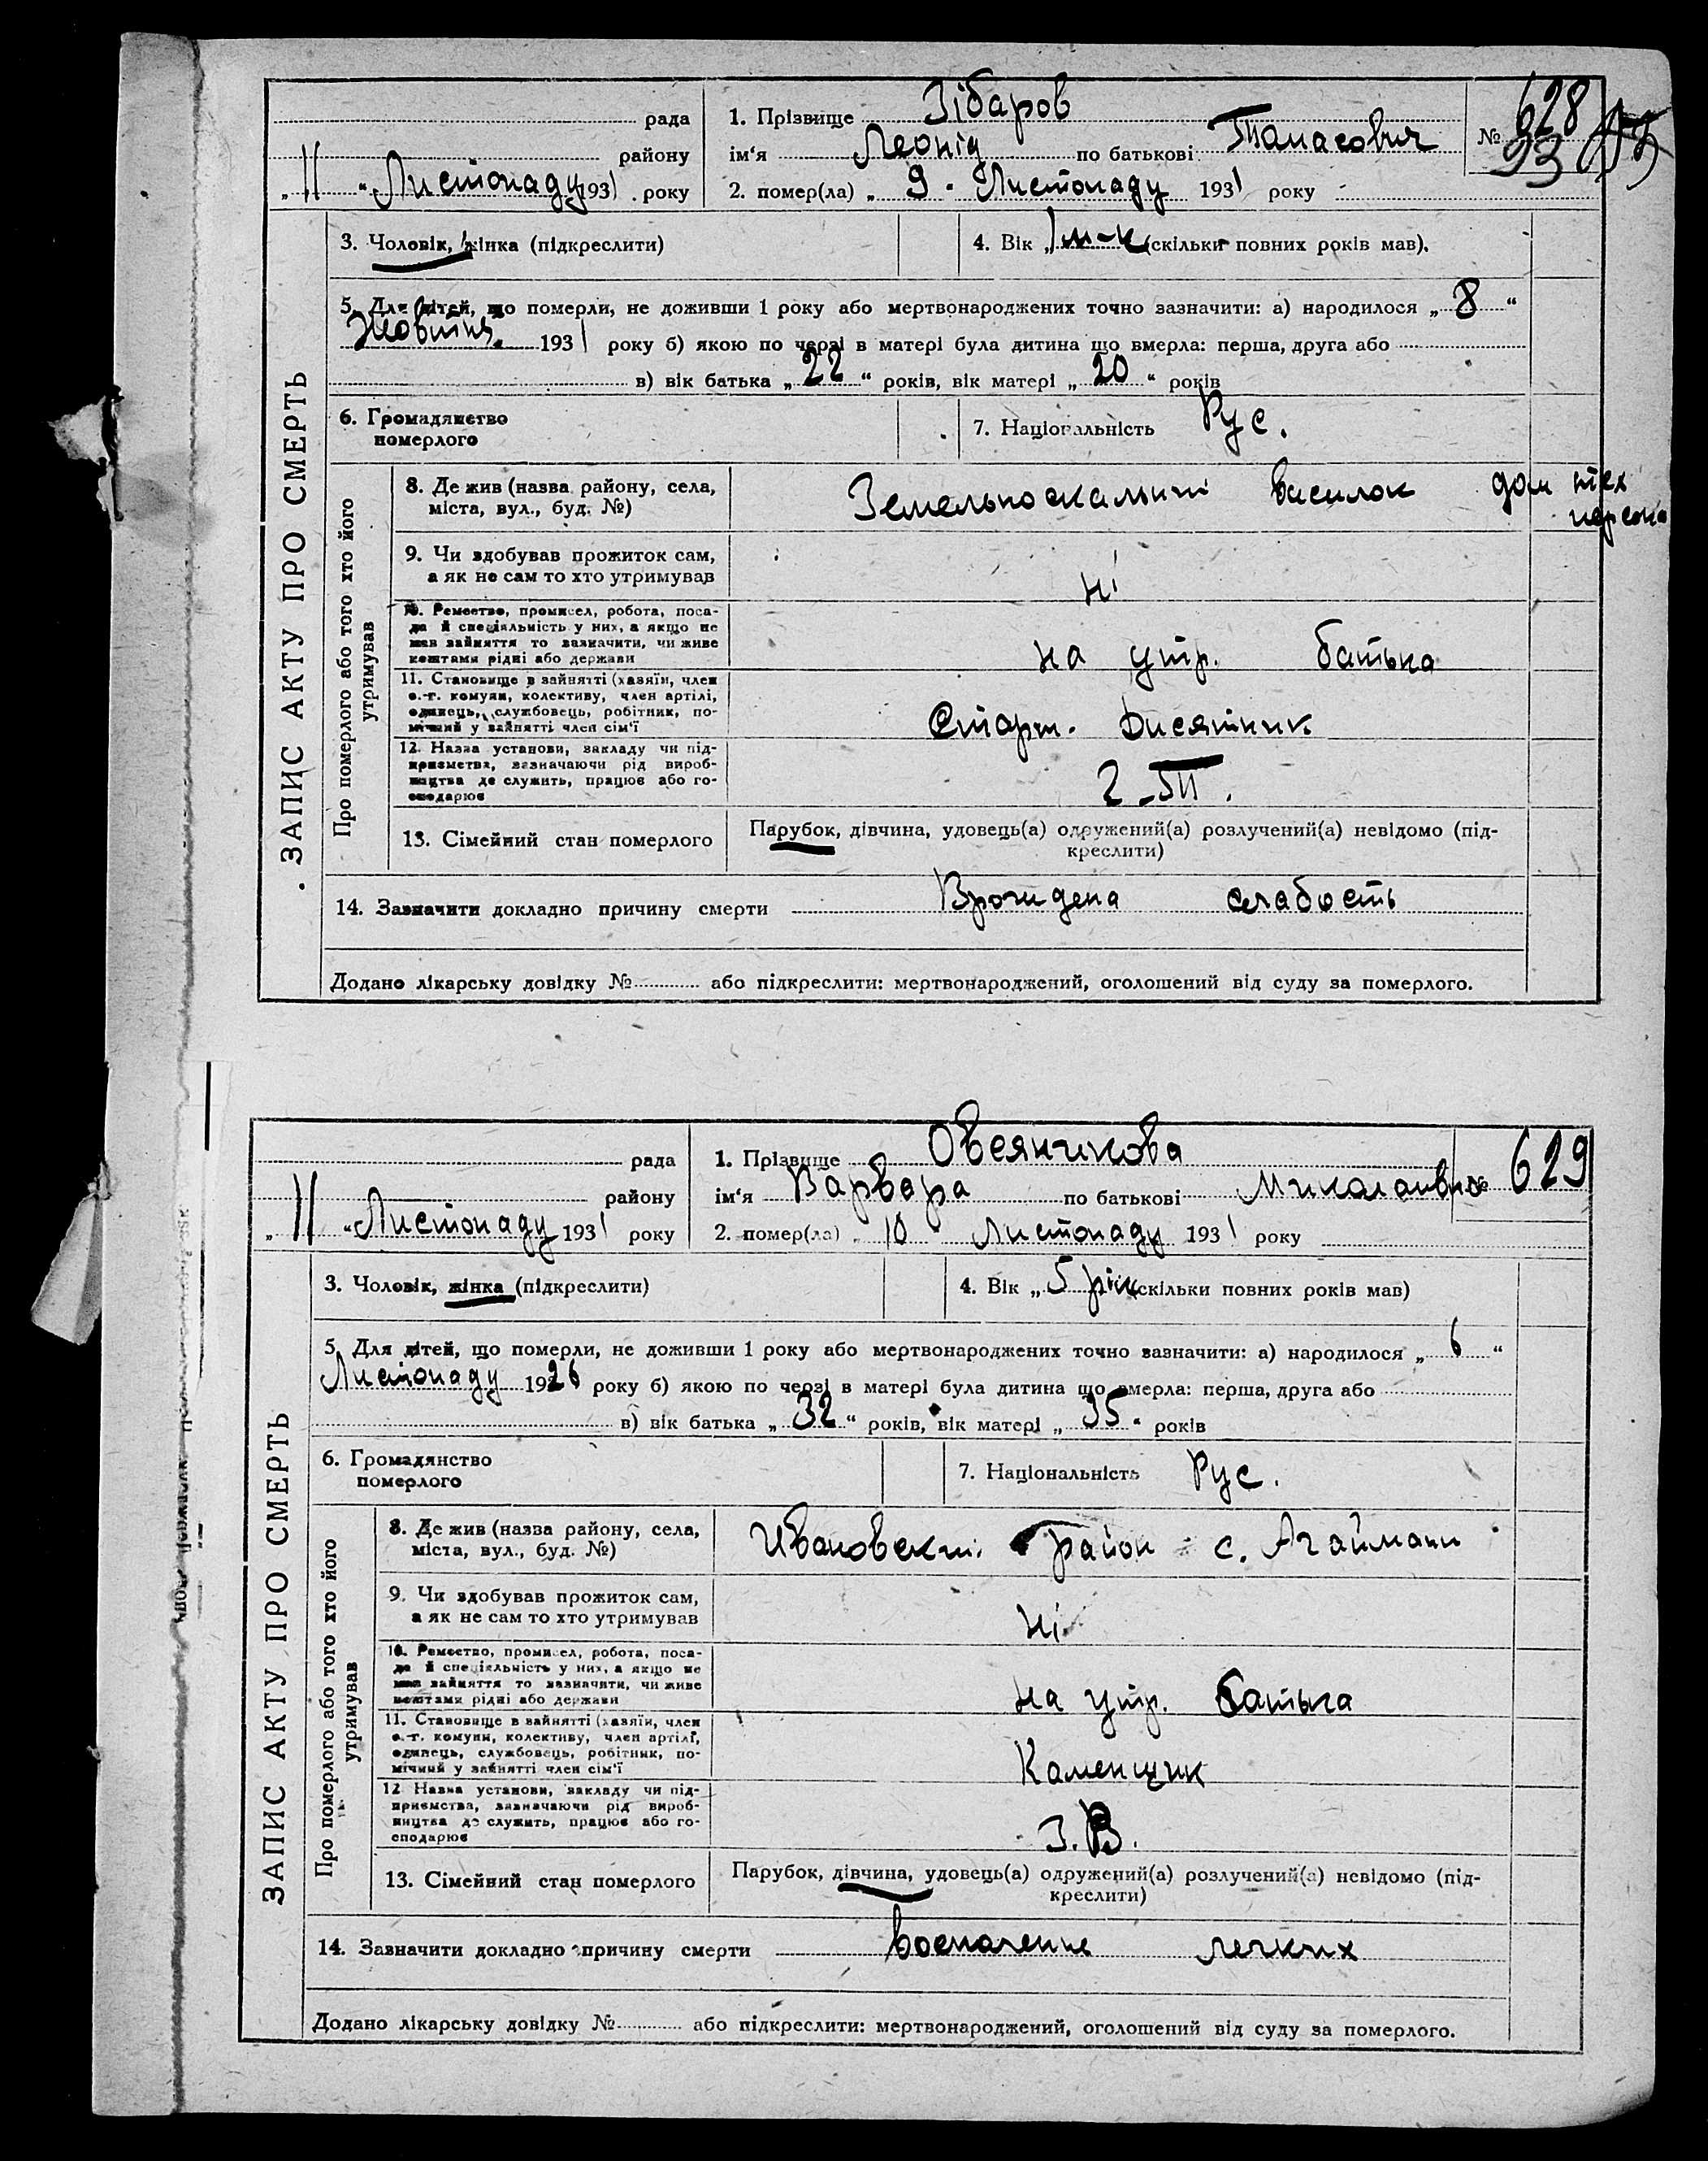 рада
району
„ 11 “ Листопаду 1931 року
1. Прізвище Зібаров
ім‘я Леонід по батькові Танасович
2. помер(ла) „ 9 “ Листопаду 1931 року
№ 628
93
ЗАПИС АКТУ ПРО СМЕРТЬ
3. Чоловік, жінка (підкреслити)
4. Вік „ 1 м-ц (скільки повних років мав).
5. Для дітей, що померли, не доживши 1 року або мертвонароджених точно зазначити: а) народилося „ 8 “
Жовтня 1931 року б) якою по черзі в матері була дитина що вмерла: перша, друга або
в) вік батька „ 22 “ років, вік матері „ 20 “ років
6. Громадянство
померлого
7. Національність Рус.
Про померлого або того хто його
утримував
8. Де жив (назва району, села,
міста, вул., буд. №)
висилок дом тех
9. Чи здобував прожиток сам,
а як не сам то хто утримував
ні
10. Ремество, промисел, робота, поса-
да й спеціяльність у них, а якщо не
мав зайняття то зазначити, чи живе
коштами рідні або держави
на утр. батька
11. Становище в зайнятті (хазяїн, член
с.-г. комуни, колективу, член артілі,
одинець, службовець, робітник, по-
мічний у зайнятті член сім‘ї
Старш. Дисятник
12. Назва установи, закладу чи під-
приємства, зазначаючи рід вироб-
ництва де служить, працює або го-
сподарює
13. Сімейний стан померлого
Парубок, дівчина, удовець(а) одружений(а) розлучений(а) невідомо (під-
креслити)
14. Зазначити докладно причину смерти Врожидена слабость
Додано лікарську довідку № або підкреслити: мертвонароджений, оголошений від суду за померлого.
рада
району
„ 11 “ Листопаду 1931 року
1. Прізвище Овсянчікова
ім‘я Варвара по батькові Миколаівна
2. помер(ла) „ 10 “ Листопаду 1931 року
№ 629
ЗАПИС АКТУ ПРО СМЕРТЬ
3. Чоловік, жінка (підкреслити)
4. Вік „ 5 рік (скільки повних років мав)
5. Для дітей, що померли, не доживши 1 року або мертвонароджених точно зазначити: а) народилося „ 6 “
Листопаду 1926 року б) якою по черзі в матері була дитина що вмерла: перша, друга або
в) вік батька „ 32 “ років, вік матері „ 35 “ років
6. Громадянство
померлого
7. Національність Рус.
Про померлого або того хто його
утримував
8. Де жив (назва району, села,
міста, вул., буд. №)
Ивановский район с. Агаймани
9. Чи здобував прожиток сам,
а як не сам то хто утримував
ні
10. Ремество, промисел, робота, поса-
да й спеціяльність у них, а якщо не
мав зайняття то зазначити, чи живе
коштами рідні або держави
на утр. батька
11. Становище в зайнятті (хазяїн, член
с.-г. комуни, колективу, член артілі,
одинець, службовець, робітник, по-
мічний у зайнятті член сім‘ї
Каменщик
12. Назва установи, закладу чи під-
приємства, зазначаючи рід вироб-
ництва де служить, працює або го-
сподарює
З.В.
13. Сімейний стан померлого
Парубок, дівчина, удовець(а) одружений(а) розлучений(а) невідомо (під-
креслити)
14. Зазначити докладно причину смерти воспаление легких
Додано лікарську довідку № або підкреслити: мертвонароджений, оголошений від суду за померлого.